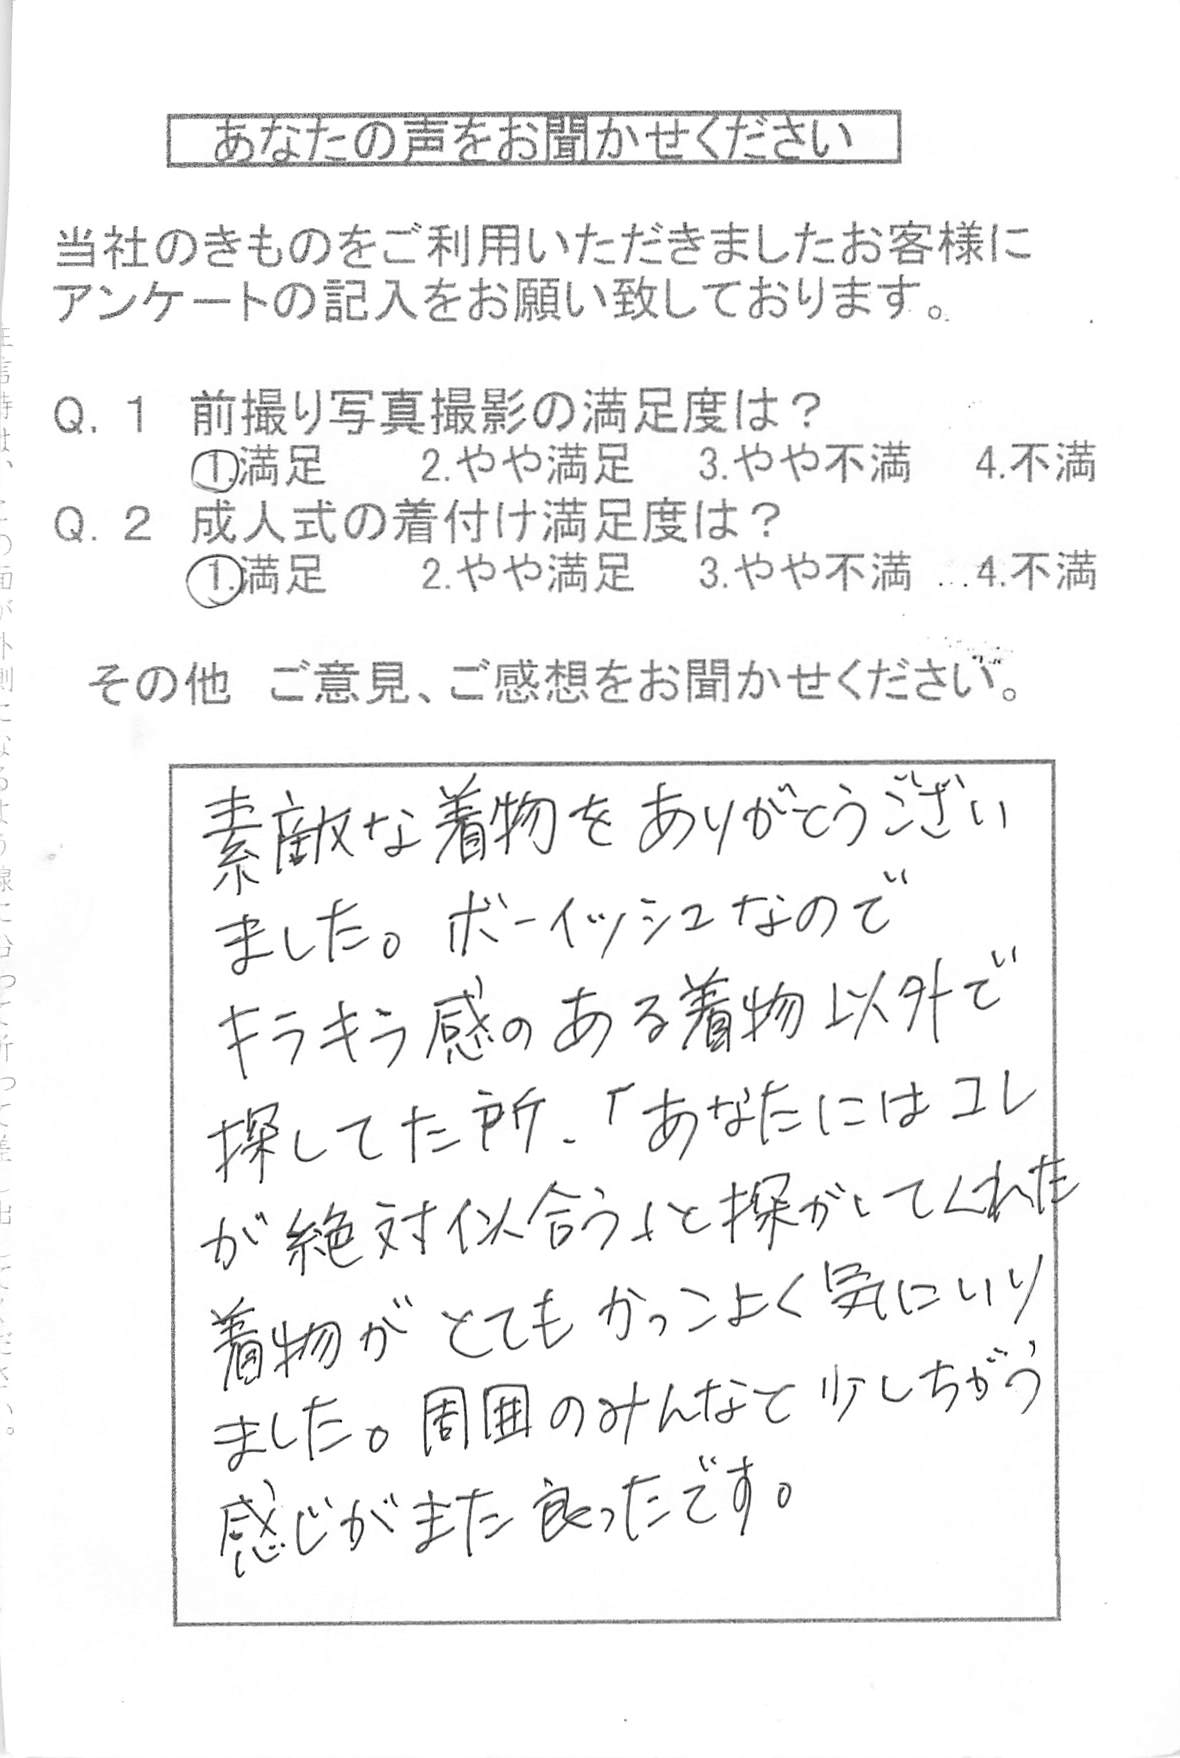 あなたの声をお聞かせください
当社のきものをご利用いただきましたお客様に
アンケートの記入をお願い致しております。
Q.1 前撮り写真撮影の満足度は?
1.満足 2.やや満足 3.やや不満 4.不満
Q.2 成人式の着付け満足度は?
1.満足 2.やや満足 3.やや不満 4.不満
その他 ご意見、ご感想をお聞かせください。
素敵な着物をありがとうござい
ました。ボーイッシュなので
キラキラ感のある着物以外で
探してた所、「あなたにはコレ
が絶対似合う」と探がしてくれた
着物がとてもかっこよく気にいり
ました。周囲のみんなと少しちがう
感じがまた良ったです。